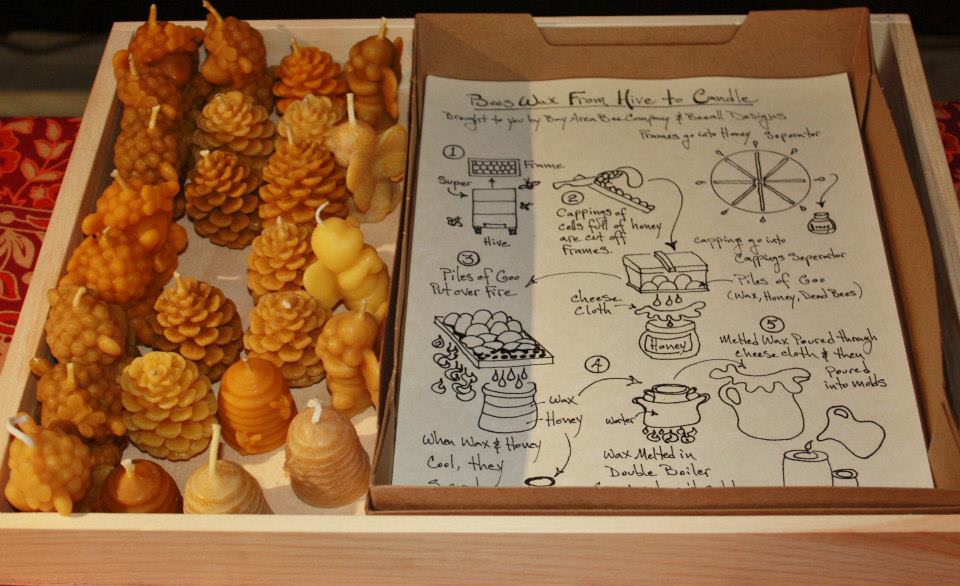 Bees Wax From Hive to Candle
Brought to you by Bay Area Bee Company & Beeall Designs
Frames go into Honey Separator
1
Frame
Super
Hive
2
Cappings of
cells full of honey
are cut off
Frames.
honey
cappings go into
Cappings Seperator
3
Piles of Goo
Put over Fire
Piles of Goo
(Wax, Honey, Dead Bees)
cheese
cloth
Honey
wax
Honey
When Wax & Honey
Cool, they
4
water
Wax Melted in
Double Boiler
5
Melted Wax Poured through
cheese cloth & they
Poured
into molds